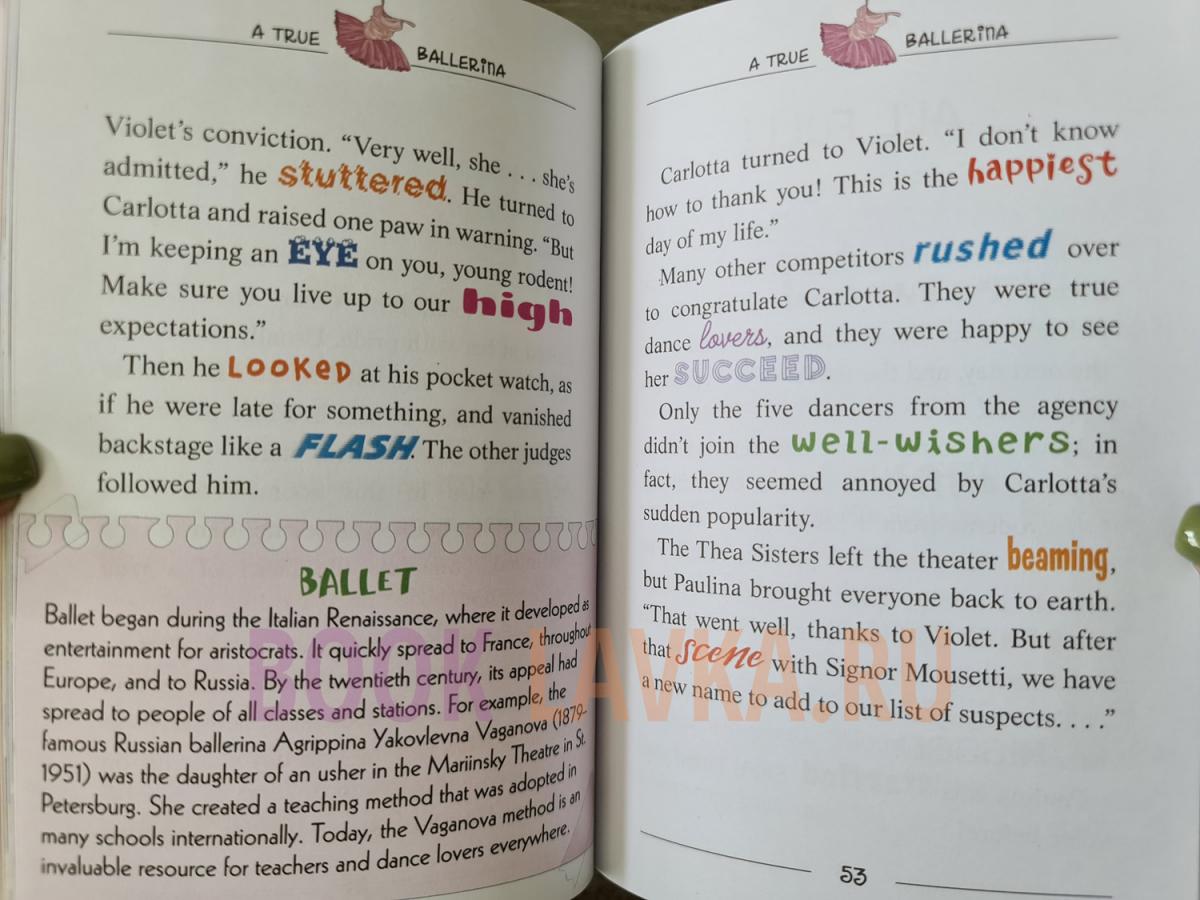 A TRUE BALLERINA
Violet's conviction. “Very well, she . . . she's
admitted,” he stuttered. He turned to
Carlotta and raised one paw in warning. “But
I'm keeping an EYE on you, young rodent!
Make sure you live up to our high
expectations.”
Then he LOOKED at his pocket watch, as
if he were late for something, and vanished
backstage like a FLASH. The other judges
followed him.
BALLET
Ballet began during the Italian Renaissance, where it developed as
entertainment for aristocrats. It quickly spread to France, throughout
Europe, and to Russia. By the twentieth century, its appeal had
spread to people of all classes and stations. For example, the
famous Russian ballerina Agrippina Yakovlevna Vaganova (1879-
1951) was the daughter of an usher in the Mariinsky Theatre in St.
Petersburg. She created a teaching method that was adopted in
many schools internationally. Today, the Vaganova method is an
invaluable resource for teachers and dance lovers everywhere.
A TRUE BALLERINA
Carlotta turned to Violet. “I don't know
how to thank you! This is the happiest
day of my life.”
Many other competitors rushed over
to congratulate Carlotta. They were true
dance lovers, and they were happy to see
her SUCCEED.
Only the five dancers from the agency
didn't join the well-wishers; in
fact, they seemed annoyed by Carlotta's
sudden popularity.
The Thea Sisters left the theater beaming,
but Paulina brought everyone back to earth.
“That went well, thanks to Violet. But after
that scene with Signor Mousetti, we have
a new name to add to our list of suspects. . . .”
53
BOOK-LAVKA.RU